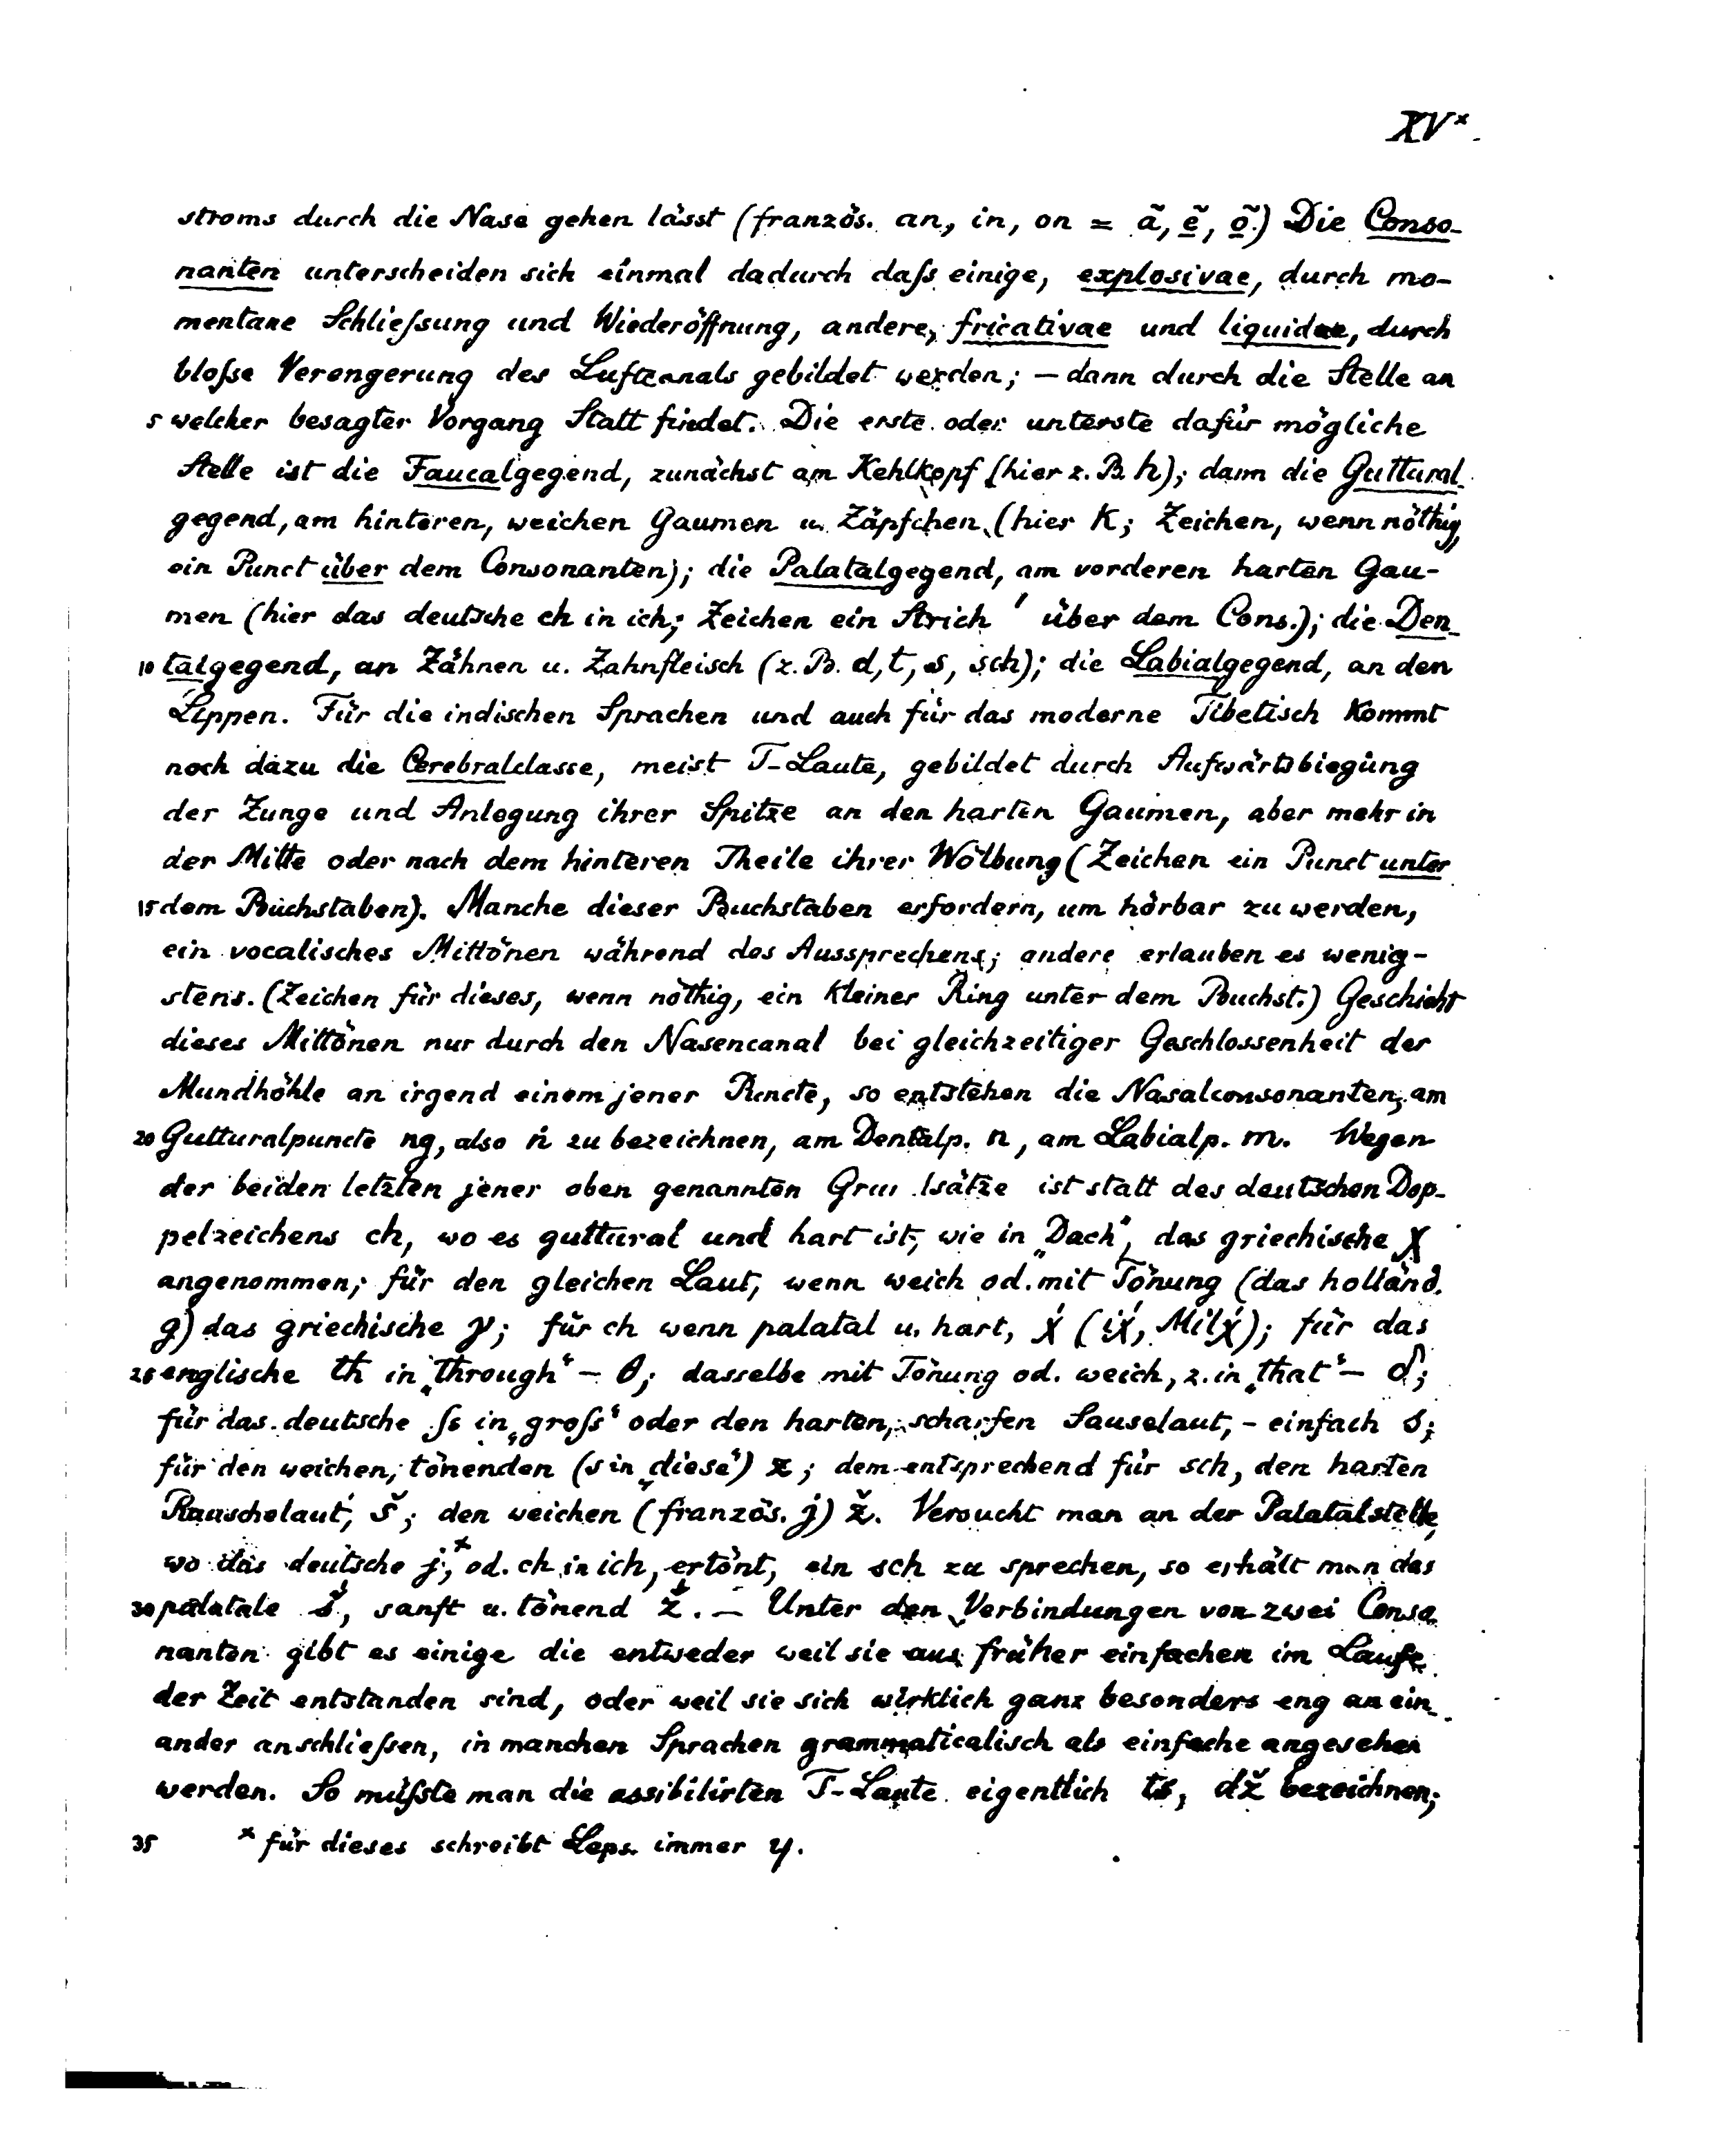 XVˣ
stroms durch die Nase gehen lässt (französ. an, in, on = ã, ẽ̱, õ̱.) Die Conso-
nanten unterscheiden sich einmal dadurch daſs einige, explosivae, durch mo-
mentane Schlieſsung und Wiederöffnung, andere, fricativae und liquidae, durch
bloſse Verengerung des Luftcanals gebildet werden; – dann durch die Stelle an
5 welcher besagter Vorgang Statt findet. Die erste oder unterste dafür mögliche
Stelle ist die Faucalgegend, zunächst am Kehlkopf (hier z. B. h); dann die Guttural-
gegend, am hinteren, weichen Gaumen u. Zäpfchen (hier k; Zeichen, wenn nöthig,
ein Punct über dem Consonanten); die Palatalgegend, am vorderen harten Gau-
men (hier das deutsche ch in ich; Zeichen ein Strich ʹ über dem Cons.); die Den-
10 talgegend, an Zähnen u. Zahnfleisch (z. B. d, t, s, sch); die Labialgegend, an den
Lippen. Für die indischen Sprachen und auch für das moderne Tibetisch kommt
noch dazu die Cerebralclasse, meist T-Laute, gebildet durch Aufwärtsbiegung
der Zunge und Anlegung ihrer Spitze an den harten Gaumen, aber mehr in
der Mitte oder nach dem hinteren Theile ihrer Wölbung (Zeichen ein Punct unter
15 dem Buchstaben). Manche dieser Buchstaben erfordern, um hörbar zu werden,
ein vocalisches Mittönen während des Aussprechens; andere erlauben es wenig-
stens. (Zeichen für dieses, wenn nöthig, ein kleiner Ring unter dem Buchst.) Geschieht
dieses Mittönen nur durch den Nasencanal bei gleichzeitiger Geschlossenheit der
Mundhöhle an irgend einem jener Puncte, so entstehen die Nasalconsonanten, am
20 Gutturalpuncte ng, also ṅ zu bezeichnen, am Dentalp. n, am Labialp. m. Wegen
der beiden letzten jener oben genannten Grundsätze ist statt des deutschen Dop-
pelzeichens ch, wo es guttural und hart ist, wie in „Dach“, das griechische χ
angenommen; für den gleichen Laut, wenn weich od. mit Tönung (das holländ.
g) das griechische γ; für ch wenn palatal u. hart, χ́ (iχ́, Milχ́); für das
25 englische th in „through“ – θ; dasselbe mit Tönung od. weich, z. in „that“ – δ;
für das deutsche ſs in „groſs“ oder den harten, scharfen Sauselaut, – einfach s;
für den weichen, tönenden (s in „diese“) z; dementsprechend für sch, den harten
Rauschelaut, š; den weichen (französ. j) ž. Versucht man an der Palatalstelle,
wo das deutsche j,ˣ od. ch in ich, ertönt, ein sch zu sprechen, so erhält man das
30 palatale š́, sanft u. tönend ž́. – Unter den Verbindungen von zwei Conso-
nanten gibt es einige die entweder weil sie aus früher einfachen im Laufe
der Zeit entstanden sind, oder weil sie sich wirklich ganz besonders eng an ein-
ander anschlieſsen, in manchen Sprachen grammaticalisch als einfache angesehen
werden. So müſste man die assibilirten T-Laute eigentlich ts, dž bezeichnen;
35 ˣ für dieses schreibt Leps. immer y.